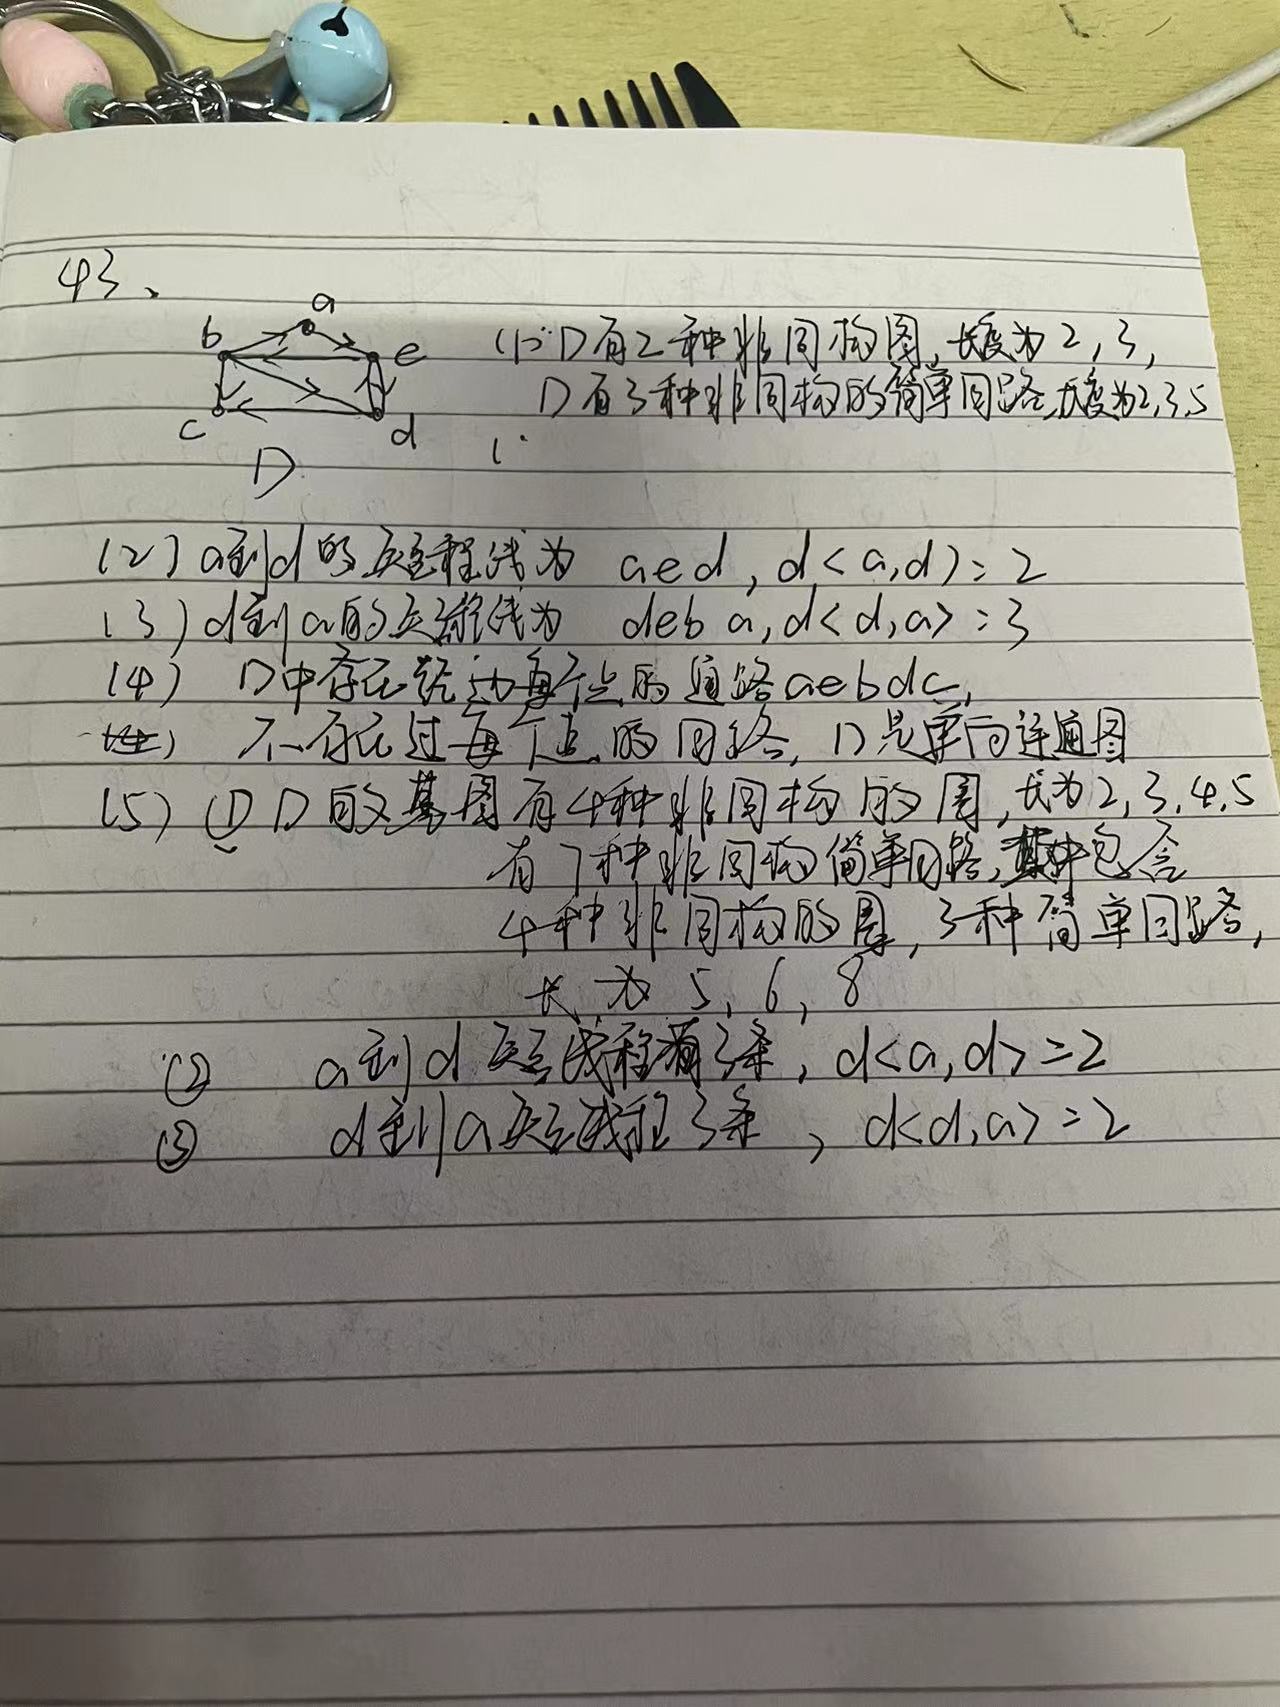 43、
a
b
e
c
d
D
(1) D有2种非同构圈,长度为2,3,
D有3种非同构的简单回路,长度为2,3,5
(
(2) a到d的短程线为 aed, d<a,d>=2
(3) d到a的短程线为 deba, d<d,a>=3
(4) D中存在经过每个点的通路aebdc,
不存在过每个点的回路, D是单向连通图
(5) ① D的基图有4种非同构的圈, 长为2,3,4,5
有7种非同构简单回路,其中包含
4种非同构的圈, 3种简单回路,
长为 5, 6, 8
② a到d短线程有3条, d<a,d>=2
③ d到a短线程3条, d<d,a>=2